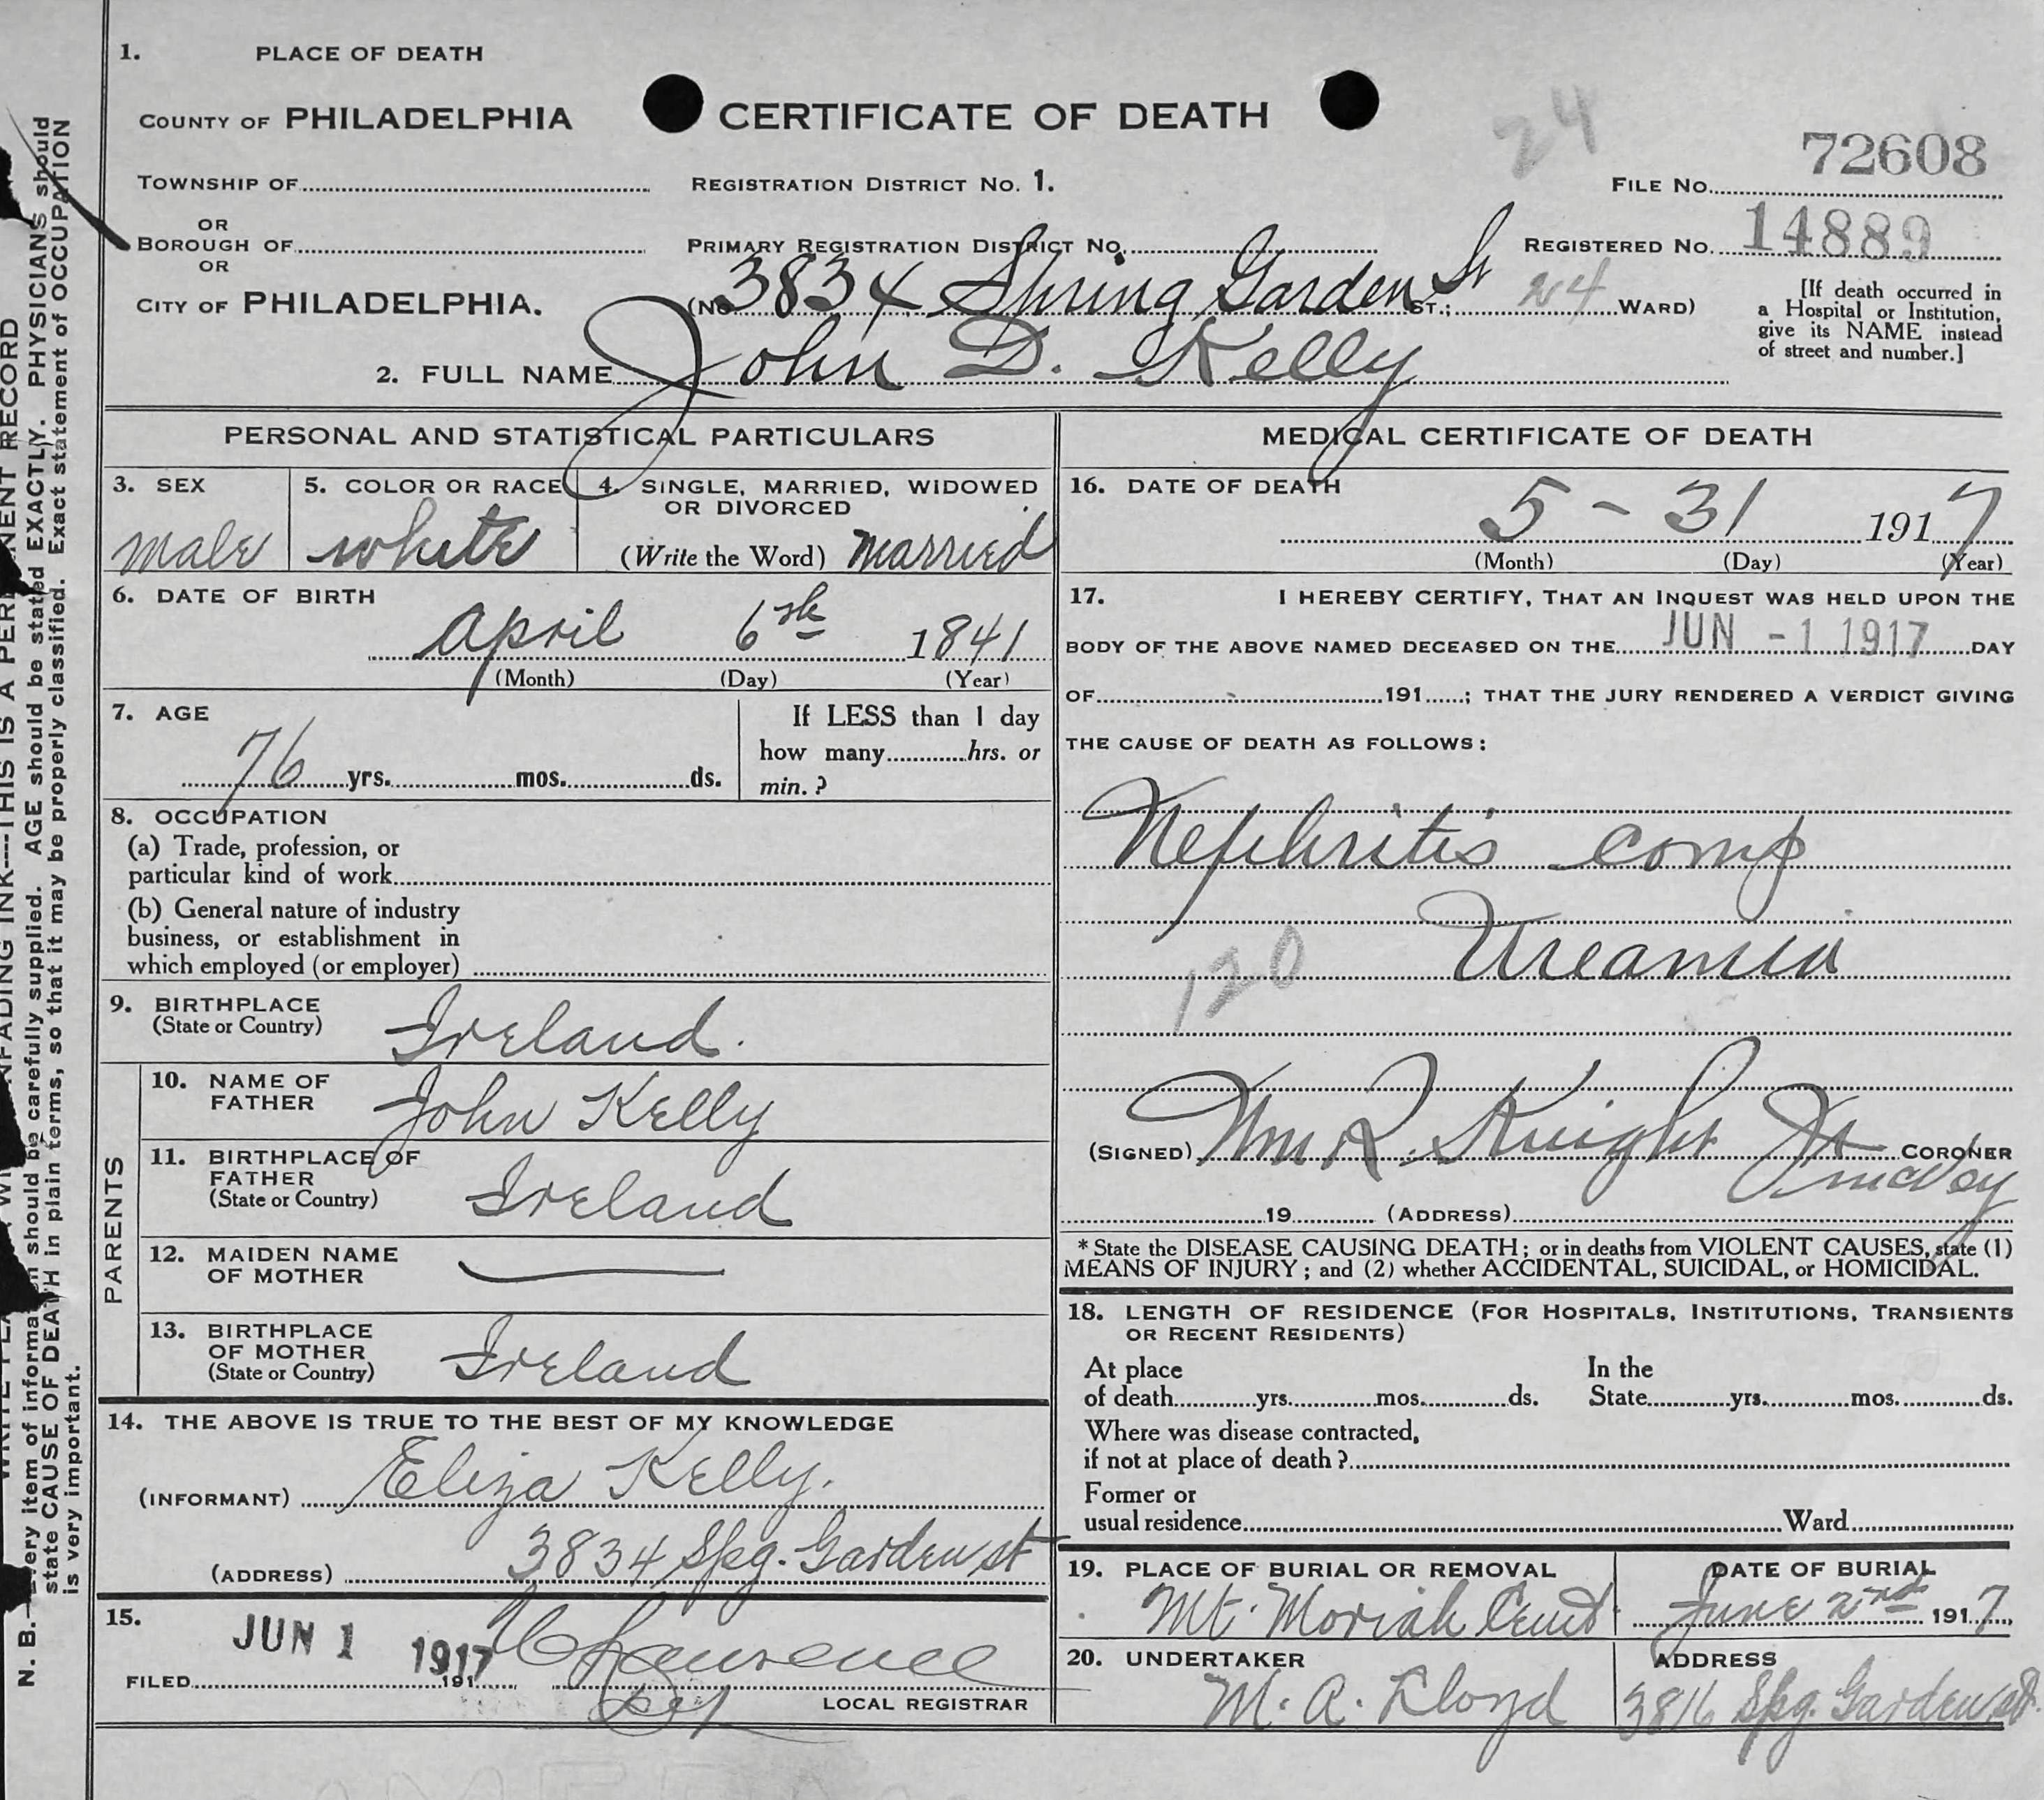 1. PLACE OF DEATH
COUNTY OF PHILADELPHIA
CERTIFICATE OF DEATH
24
72608
TOWNSHIP OF
REGISTRATION DISTRICT NO. 1.
FILE NO.
OR
BOROUGH OF
PRIMARY REGISTRATION DISTRICT NO.
REGISTERED NO. 14889
OR
CITY OF PHILADELPHIA.
(NO 3834 Spring Garden St ST.; 24 WARD)
[If death occurred in
a Hospital or Institution,
give its NAME instead
of street and number.]
2. FULL NAME John D. Kelly
PERSONAL AND STATISTICAL PARTICULARS
3. SEX
male
5. COLOR OR RACE
white
4. SINGLE, MARRIED, WIDOWED
OR DIVORCED
(Write the Word) married
6. DATE OF BIRTH
April 6th 1841
(Month) (Day) (Year)
7. AGE
76 yrs. mos. ds.
If LESS than 1 day
how many hrs. or
min. ?
8. OCCUPATION
(a) Trade, profession, or
particular kind of work
(b) General nature of industry
business, or establishment in
which employed (or employer)
9. BIRTHPLACE
(State or Country) Ireland.
PARENTS
10. NAME OF
FATHER John Kelly
11. BIRTHPLACE OF
FATHER
(State or Country) Ireland
12. MAIDEN NAME
OF MOTHER
13. BIRTHPLACE
OF MOTHER
(State or Country) Ireland
14. THE ABOVE IS TRUE TO THE BEST OF MY KNOWLEDGE
(INFORMANT) Eliza Kelly.
(ADDRESS) 3834 Spg. Garden st
15.
FILED JUN 1 1917 191
Lawrence
LOCAL REGISTRAR
MEDICAL CERTIFICATE OF DEATH
16. DATE OF DEATH
5 - 31 1917
(Month) (Day) (Year)
17. I HEREBY CERTIFY, THAT AN INQUEST WAS HELD UPON THE
BODY OF THE ABOVE NAMED DECEASED ON THE JUN - 1 1917 DAY
OF 191 ; THAT THE JURY RENDERED A VERDICT GIVING
THE CAUSE OF DEATH AS FOLLOWS :
Nephritis comp
Ureamia
120
(SIGNED) Wm R. Knight Jr CORONER
McVey
19 (ADDRESS)
* State the DISEASE CAUSING DEATH ; or in deaths from VIOLENT CAUSES, state (1)
MEANS OF INJURY ; and (2) whether ACCIDENTAL, SUICIDAL, or HOMICIDAL.
18. LENGTH OF RESIDENCE (FOR HOSPITALS, INSTITUTIONS, TRANSIENTS
OR RECENT RESIDENTS)
At place
of death yrs. mos. ds.
In the
State yrs. mos. ds.
Where was disease contracted,
if not at place of death ?
Former or
usual residence Ward
19. PLACE OF BURIAL OR REMOVAL
Mt. Moriah Cemt.
DATE OF BURIAL
June 2nd 1917
20. UNDERTAKER
M. A. Lloyd
ADDRESS
3816 Spg. Garden st.
RECORD
N. B. ery item of informa should be carefully supplied. AGE should be stated EXACTLY. PHYSICIANS should
state CAUSE OF DEATH in plain terms, so that it may be properly classified. Exact statement of OCCUPATION
is very important.